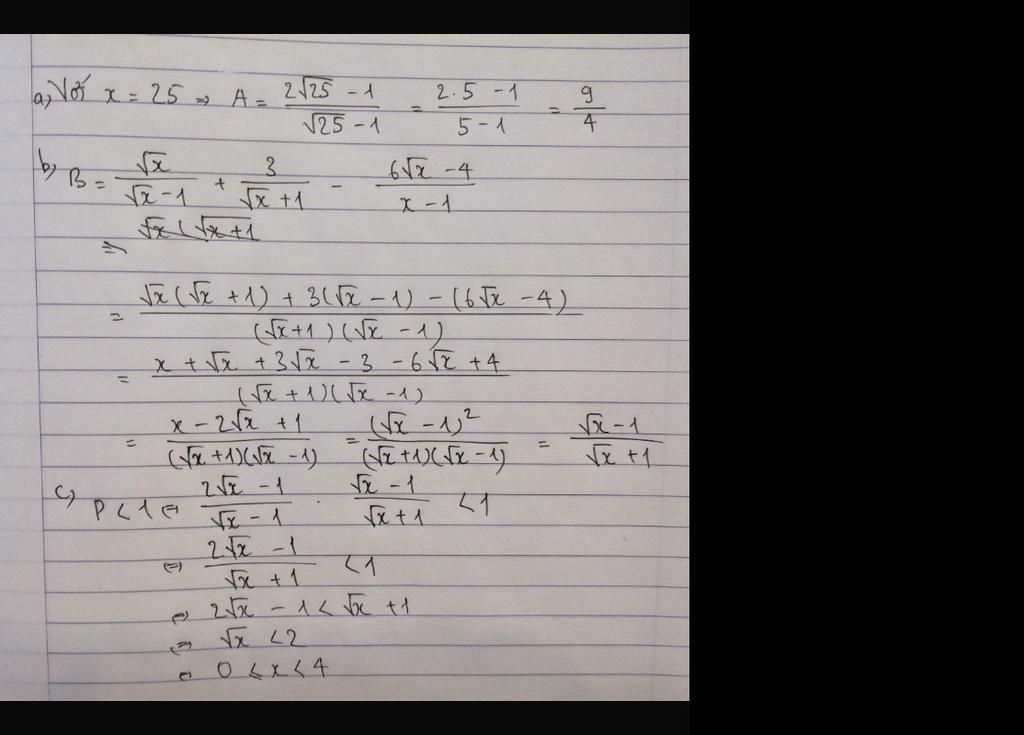 a, Với x = 25 => A = (2√25 - 1)/(√25 - 1) = (2.5 - 1)/(5 - 1) = 9/4
b, B = √x/(√x - 1) + 3/(√x + 1) - (6√x - 4)/(x - 1)
=> √x (√x+1
= (√x(√x + 1) + 3(√x - 1) - (6√x - 4))/((√x+1)(√x - 1))
= (x + √x + 3√x - 3 - 6√x + 4)/((√x + 1)(√x - 1))
= (x - 2√x + 1)/((√x+1)(√x - 1)) = (√x - 1)²/((√x+1)(√x - 1)) = (√x - 1)/(√x + 1)
c, P < 1 <=> (2√x - 1)/(√x - 1) . (√x - 1)/(√x + 1) < 1
<=> (2√x - 1)/(√x + 1) < 1
<=> 2√x - 1 < √x + 1
<=> √x < 2
<=> 0 ≤ x < 4